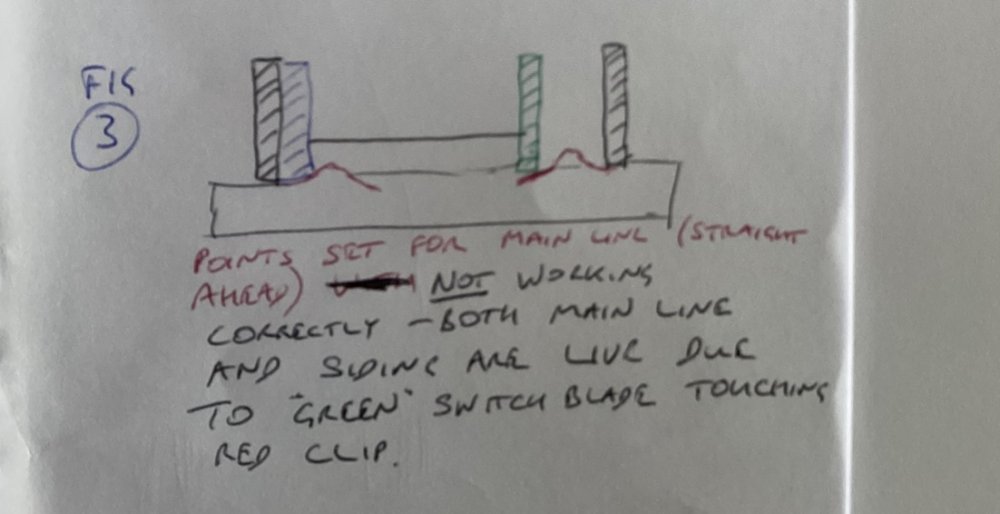 FIG
3
POINTS SET FOR MAIN LINE (STRAIGHT
AHEAD) NOT WORKING
CORRECTLY - BOTH MAIN LINE
AND SIDING ARE LIVE DUE
TO "GREEN" SWITCH BLADE TOUCHING
RED CLIP.